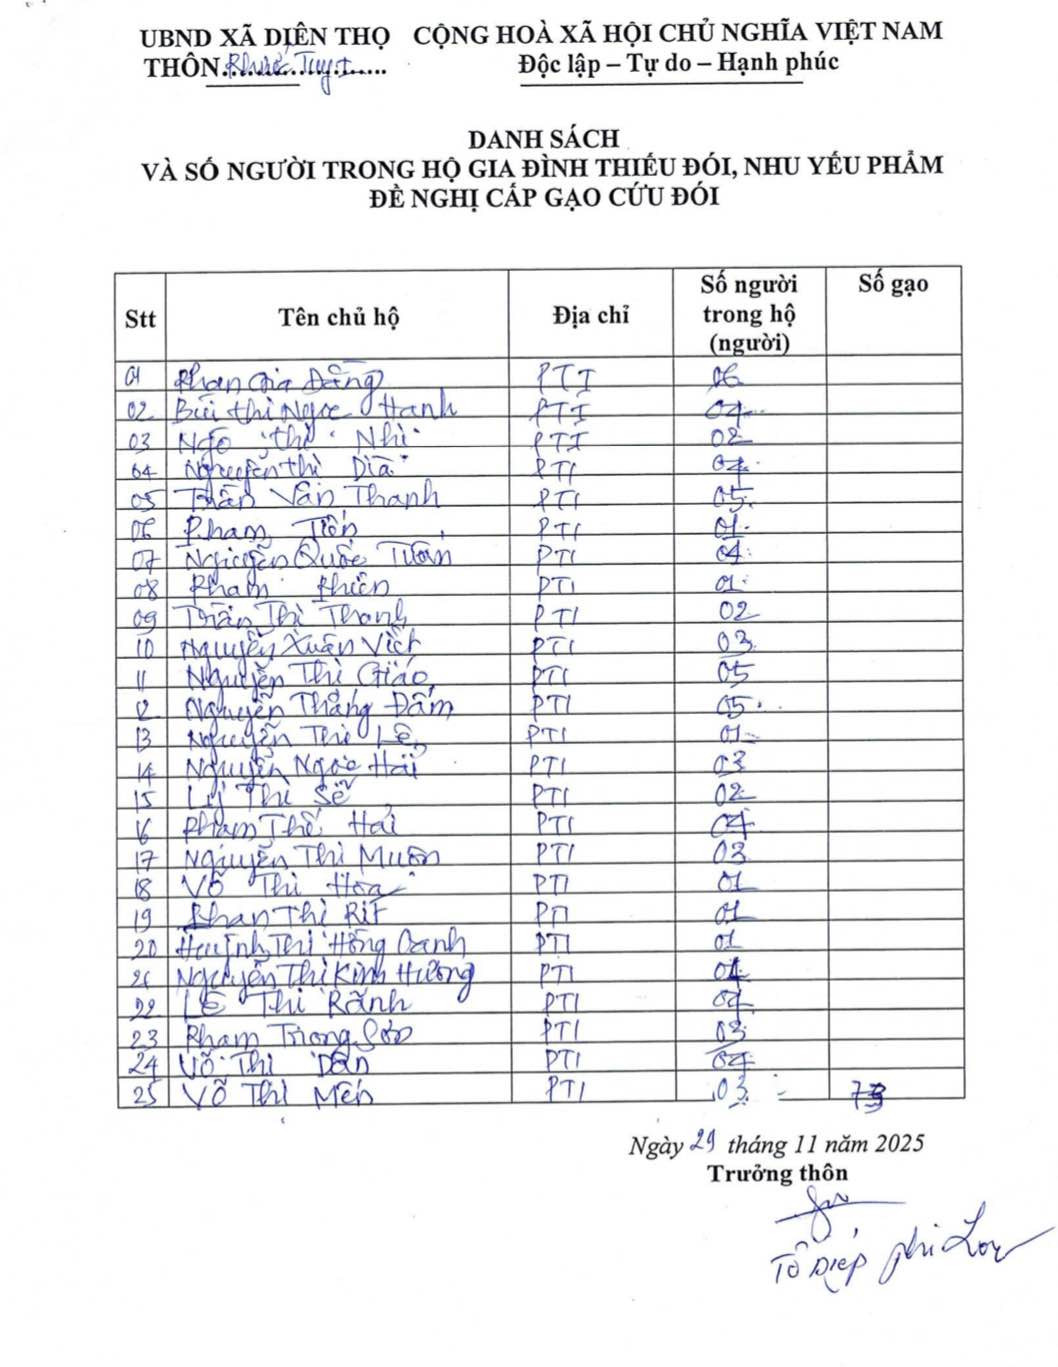 UBND XÃ DIÊN THỌ CỘNG HOÀ XÃ HỘI CHỦ NGHĨA VIỆT NAM
THÔN Phước Tuy 1 Độc lập – Tự do – Hạnh phúc
DANH SÁCH
VÀ SỐ NGƯỜI TRONG HỘ GIA ĐÌNH THIẾU ĐÓI, NHU YẾU PHẨM
ĐỀ NGHỊ CẤP GẠO CỨU ĐÓI
Stt Tên chủ hộ Địa chỉ Số người trong hộ (người) Số gạo
01 Phan Gia Đằng PTI 06
02 Bùi Thị Ngọc Hạnh PTI 04
03 Ngô Thị Nhì PTI 02
04 Nguyễn Thị Dĩa PTI 04
05 Trần Văn Thanh PTI 05
06 Phạm Tiến PTI 01
07 Nguyễn Quốc Tuấn PTI 04
08 Phạm Phiên PTI 01
09 Trần Thị Thanh PTI 02
10 Nguyễn Xuân Việt PTI 03
11 Nguyễn Thị Giáo PTI 05
12 Nguyễn Thắng Đấm PTI 05
13 Nguyễn Thị Lê PTI 01
14 Nguyễn Ngọc Hải PTI 03
15 Lý Thị Sẽ PTI 02
16 Phạm Thế Hải PTI 04
17 Nguyễn Thị Muôn PTI 03
18 Võ Thị Hoa PTI 01
19 Phan Thị Rít PTI 01
20 Huỳnh Thị Hồng Oanh PTI 01
21 Nguyễn Thị Kim Hường PTI
22 Lê Thị Rãnh PTI 04
23 Phạm Trọng Sơn PTI 03
24 Võ Thị Dần PTI 04
25 Võ Thị Mến PTI 03 73
Ngày 29 tháng 11 năm 2025
Trưởng thôn
Tô Diệp Phi Long